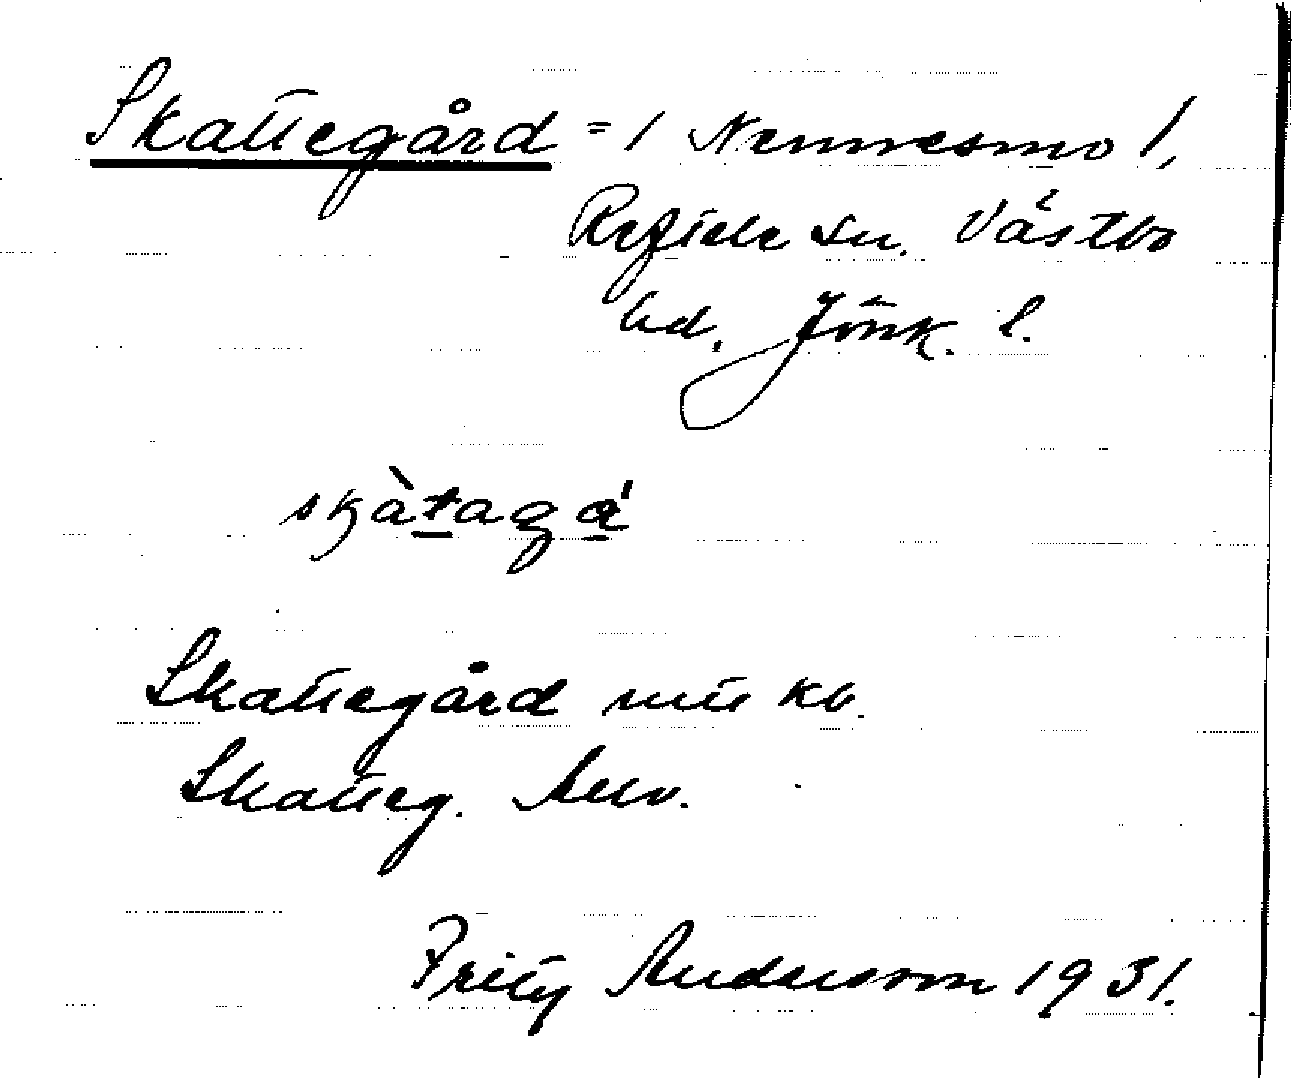 Skattegård = / Nennesmo /,
Reftele sn. Västbo
hd. Jönk. l.
skàtagá
Skattegård mtll kb.
Skatteg. Avv.
Fritz Andersson 1931.